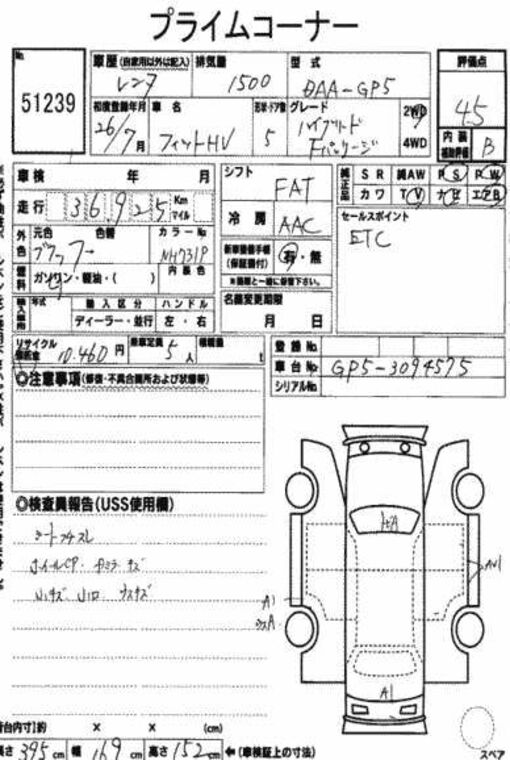 プライムコーナー
No.
51239
車歴(自家用以外は記入)
レンタ
排気量
1500
型式
DAA-GP5
評価点
4.5
初度登録年月
26/7月
車名
フィットHV
形状・ドア数
5
グレード
ハイブリッド
Fパッケージ
2WD
4WD
内装
補助評価
B
車検 年 月
走行 36,925 Km
マイル
外色
元色
色替
カラーNo.
NH731P
内装色
燃料
ガソリン・軽油・( )
輸入車用
年式
輸入区分
ハンドル
ディーラー・並行
左・右
リサイクル
預託金
10,460円
乗車定員
5人
積載量
t
シフト
FAT
冷房
AAC
新車整備手帳
(保証書付)
有・無
※書類と一緒に保管下さい。
名義変更期限
月 日
純正品
SR 純AW PS PW
カワ TV ナビ エアB
セールスポイント
ETC
登録No.
車台No.
GP5-3094575
シリアルNo.
◎注意事項(修復・不具合箇所および状態等)
◎検査員報告(USS使用欄)
A
A1
A1
スペア
荷台内寸]約 × × (cm)
長さ 395cm 幅 169cm 高さ 152cm ←(車検証上の寸法)